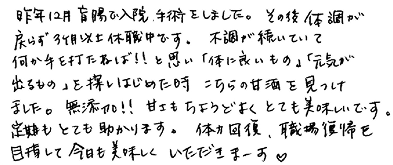 昨年12月盲腸で入院、手術をしました。その後体調が
戻らず3ヶ月以上休職中です。不調が続いていて
何か手を打たねば!!と思い「体に良いもの」「元気が
出るもの」を探しはじめた時 こちらの甘酒を見つけ
ました。無添加!! 甘さもちょうどよく とても美味しいです。
定期もとても助かります。体力回復、職場復帰を
目指して今日も美味しく いただきまーす♡